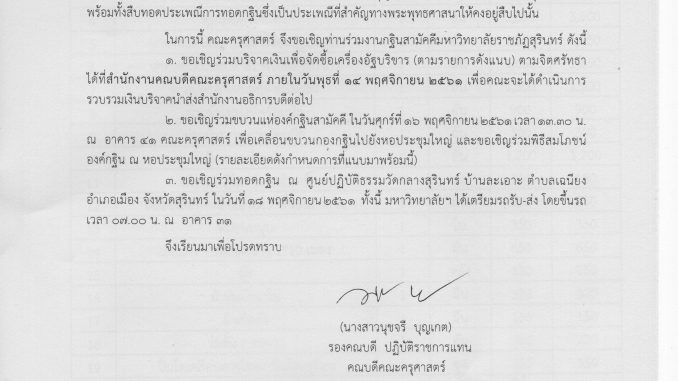 พร้อมทั้งสืบทอดประเพณีการทอดกฐินซึ่งเป็นประเพณีที่สำคัญทางพระพุทธศาสนาให้คงอยู่สืบไปนั้น
ในการนี้ คณะครุศาสตร์ จึงขอเชิญท่านร่วมงานกฐินสามัคคีมหาวิทยาลัยราชภัฏสุรินทร์ ดังนี้
๑. ขอเชิญร่วมบริจาคเงินเพื่อจัดซื้อเครื่องอัฐบริขาร (ตามรายการดังแนบ) ตามจิตศรัทธา
ได้ที่สำนักงานคณบดีคณะครุศาสตร์ ภายในวันพุธที่ ๑๔ พฤศจิกายน ๒๕๖๑ เพื่อคณะจะได้ดำเนินการ
รวบรวมเงินบริจาคนำส่งสำนักงานอธิการบดีต่อไป
๒. ขอเชิญร่วมขบวนแห่องค์กฐินสามัคคี ในวันศุกร์ที่ ๑๖ พฤศจิกายน ๒๕๖๑ เวลา ๑๓.๓๐ น.
ณ อาคาร ๔๑ คณะครุศาสตร์ เพื่อเคลื่อนขบวนกองกฐินไปยังหอประชุมใหญ่ และขอเชิญร่วมพิธีสมโภชน์
องค์กฐิน ณ หอประชุมใหญ่ (รายละเอียดดังกำหนดการที่แนบมาพร้อมนี้)
๓. ขอเชิญร่วมทอดกฐิน ณ ศูนย์ปฏิบัติธรรมวัดกลางสุรินทร์ บ้านละเอาะ ตำบลเฉนียง
อำเภอเมือง จังหวัดสุรินทร์ ในวันที่ ๑๘ พฤศจิกายน ๒๕๖๑ ทั้งนี้ มหาวิทยาลัยฯ ได้เตรียมรถรับ-ส่ง โดยขึ้นรถ
เวลา ๐๗.๐๐ น. ณ อาคาร ๓๑
จึงเรียนมาเพื่อโปรดทราบ
(นางสาวนุชจรี บุญเกต)
รองคณบดี ปฏิบัติราชการแทน
คณบดีคณะครุศาสตร์